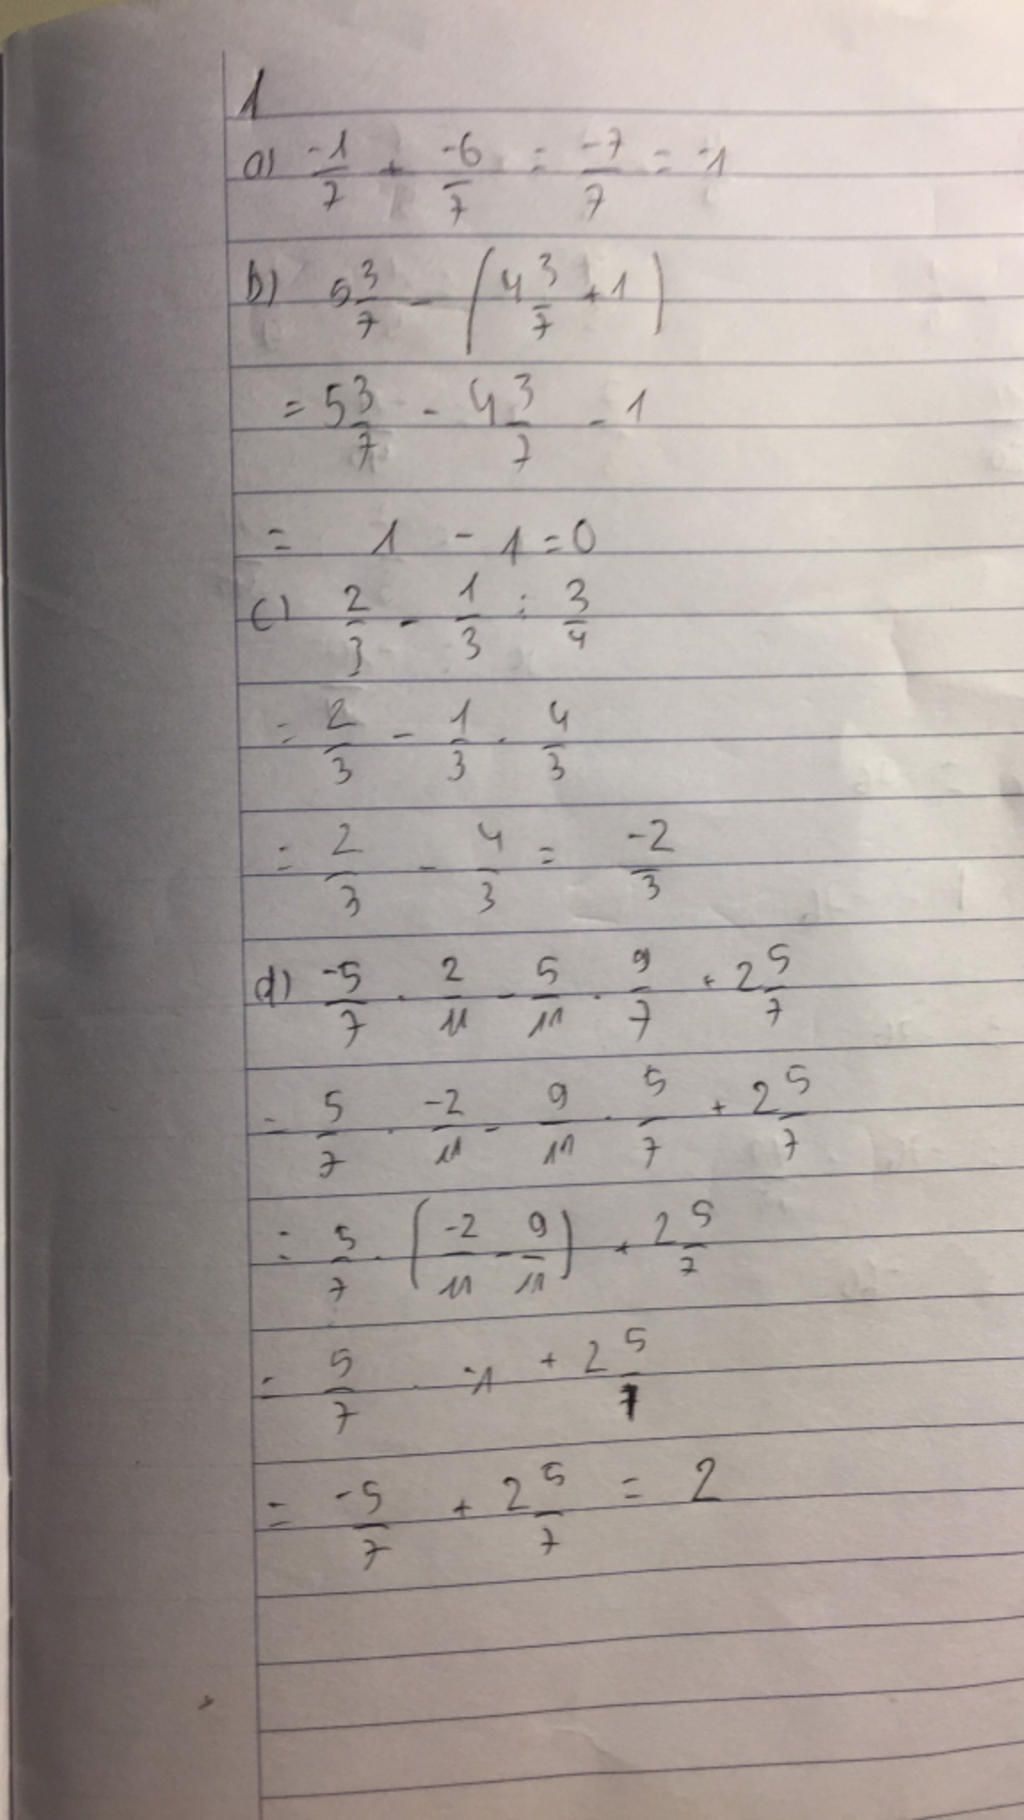 1
a) -1/7 + -6/7 = -7/7 = -1
b) 5 3/7 - (4 3/7 + 1)
= 5 3/7 - 4 3/7 - 1
= 1 - 1 = 0
c) 2/3 - 1/3 : 3/4
= 2/3 - 1/3 . 4/3
= 2/3 - 4/3 = -2/3
d) -5/7 . 2/11 - 5/11 . 9/7 + 2 5/7
= 5/7 . -2/11 - 9/11 . 5/7 + 2 5/7
= 5/7 . (-2/11 - 9/11) + 2 5/7
= 5/7 . -1 + 2 5/7
= -5/7 + 2 5/7 = 2